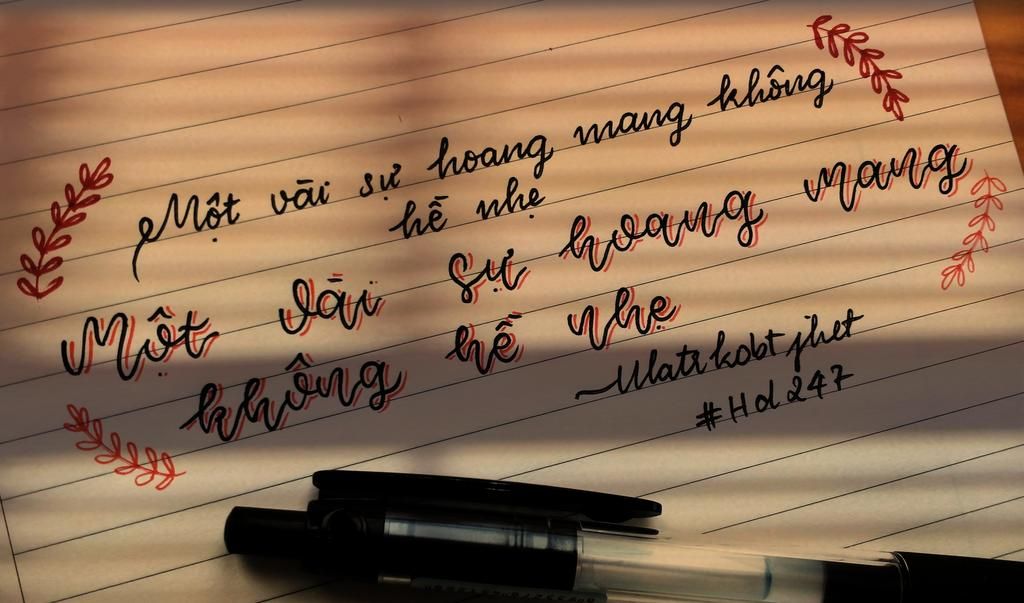 Một vài sự hoang mang không
hề nhẹ
Một vài sự hoang mang
không hề nhẹ
kobt jhet
#Hd247